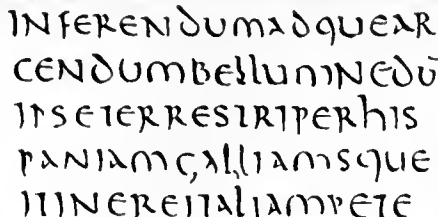 INFERENDUMADQUEAR
CENDUMBELLUMNEDŪ
IPSETERRESTRIPERHIS
PANIAMGALLIAMSQUE
ITINEREITALIAMPETE